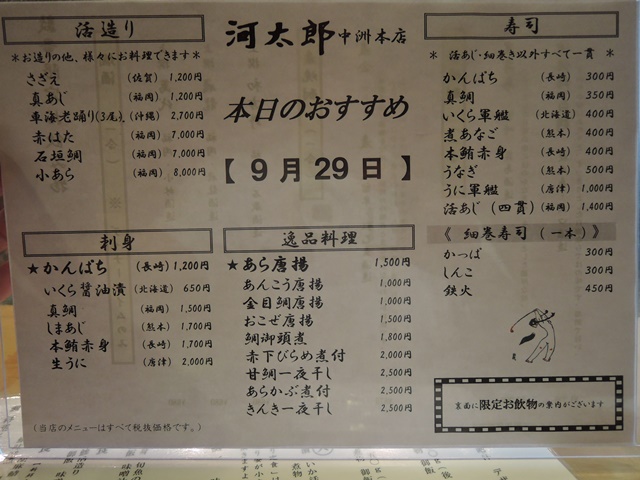 活造り
＊お造りの他、様々にお料理できます＊
さざえ （佐賀） 1,200円
真あじ （福岡） 1,200円
車海老踊り(3尾) （沖縄） 2,700円
赤はた （福岡） 7,000円
石垣鯛 （福岡） 7,000円
小あら （福岡） 8,000円
河太郎 中洲本店
本日のおすすめ
【 9月29日 】
寿司
＊ 活あじ・細巻き以外すべて一貫 ＊
かんぱち （長崎） 300円
真鯛 （福岡） 350円
いくら軍艦 （北海道） 400円
煮あなご （熊本） 400円
本鮪赤身 （長崎） 400円
うなぎ （熊本） 500円
うに軍艦 （唐津） 1,000円
活あじ（四貫） （福岡） 1,400円
《 細巻寿司（一本）》
かっぱ 300円
しんこ 300円
鉄火 450円
刺身
★かんぱち （長崎） 1,200円
いくら醤油漬 （北海道） 650円
真鯛 （福岡） 1,500円
しまあじ （熊本） 1,700円
本鮪赤身 （長崎） 1,700円
生うに （唐津） 2,000円
（当店のメニューはすべて税抜価格です。）
逸品料理
★あら唐揚 1,500円
あんこう唐揚 1,000円
金目鯛唐揚 1,000円
おこぜ唐揚 1,500円
鯛御頭煮 1,800円
赤下びらめ煮付 2,000円
甘鯛一夜干し 2,500円
あらかぶ煮付 2,500円
きんき一夜干し 2,500円
裏面に限定お飲物の案内がございます